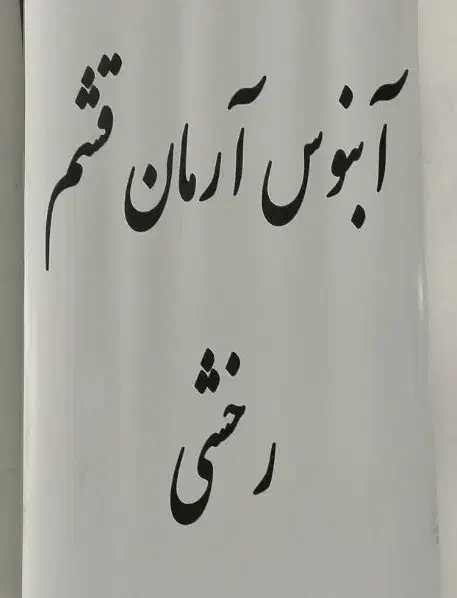 آبنوس آرمان قشم
رخشی